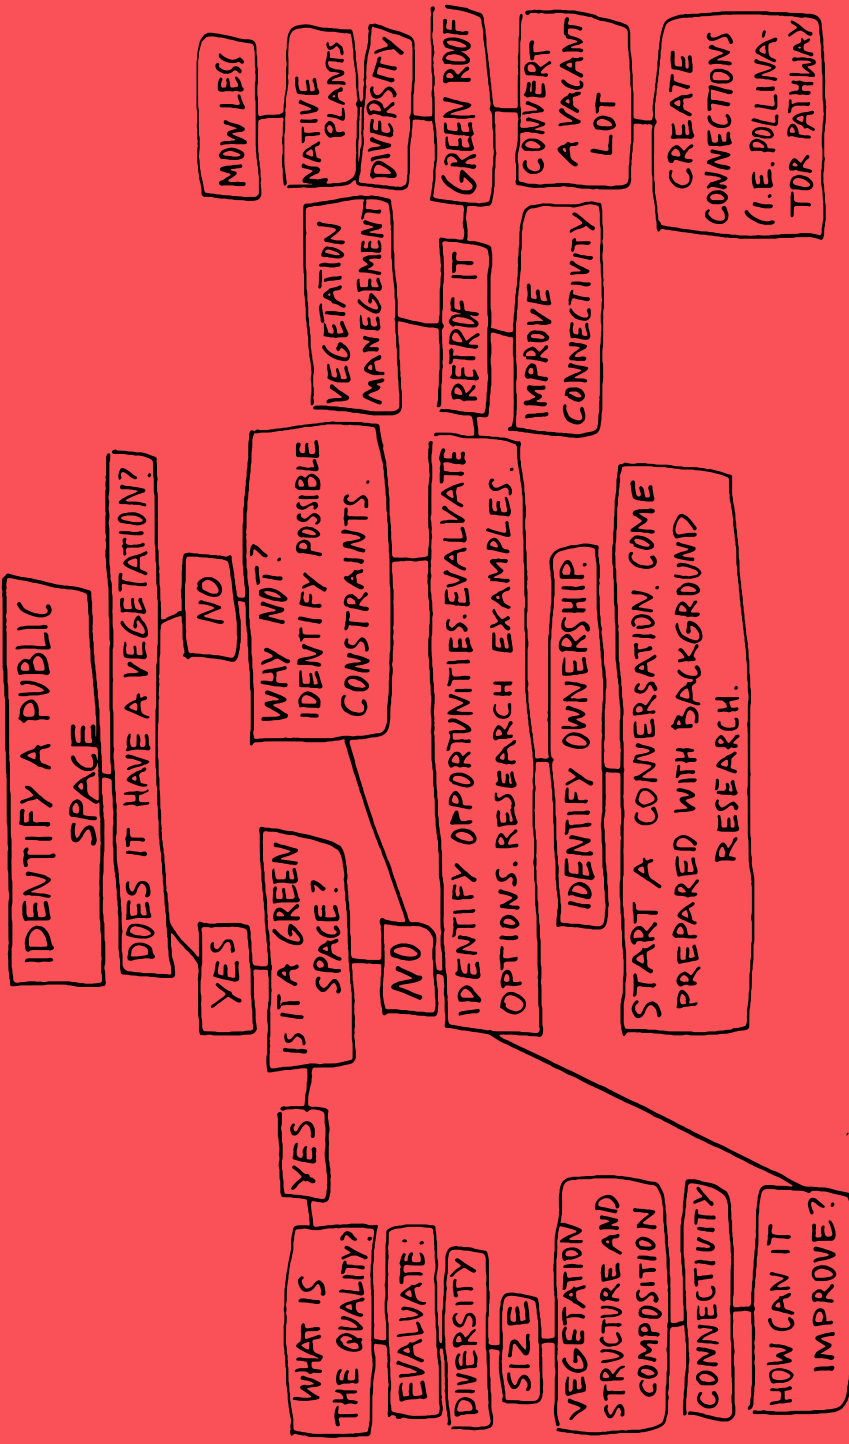 IDENTIFY A PUBLIC
SPACE
DOES IT HAVE A VEGETATION?
YES
NO
IS IT A GREEN
SPACE?
WHY NOT?
IDENTIFY POSSIBLE
CONSTRAINTS.
YES
NO
WHAT IS
THE QUALITY?
EVALUATE:
DIVERSITY
SIZE
VEGETATION
STRUCTURE AND
COMPOSITION
CONNECTIVITY
HOW CAN IT
IMPROVE?
IDENTIFY OPPORTUNITIES. EVALUATE
OPTIONS. RESEARCH EXAMPLES.
IDENTIFY OWNERSHIP.
START A CONVERSATION. COME
PREPARED WITH BACKGROUND
RESEARCH.
VEGETATION
MANEGEMENT
RETROF IT
IMPROVE
CONNECTIVITY
MOW LESS
NATIVE
PLANTS
DIVERSITY
GREEN ROOF
CONVERT
A VACANT
LOT
CREATE
CONNECTIONS
(I.E. POLLINA-
TOR PATHWAY